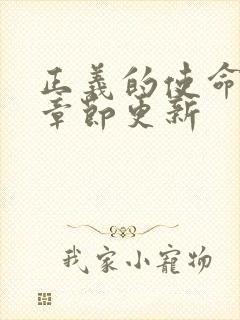 正義的使命
章節更新
我家小寵物